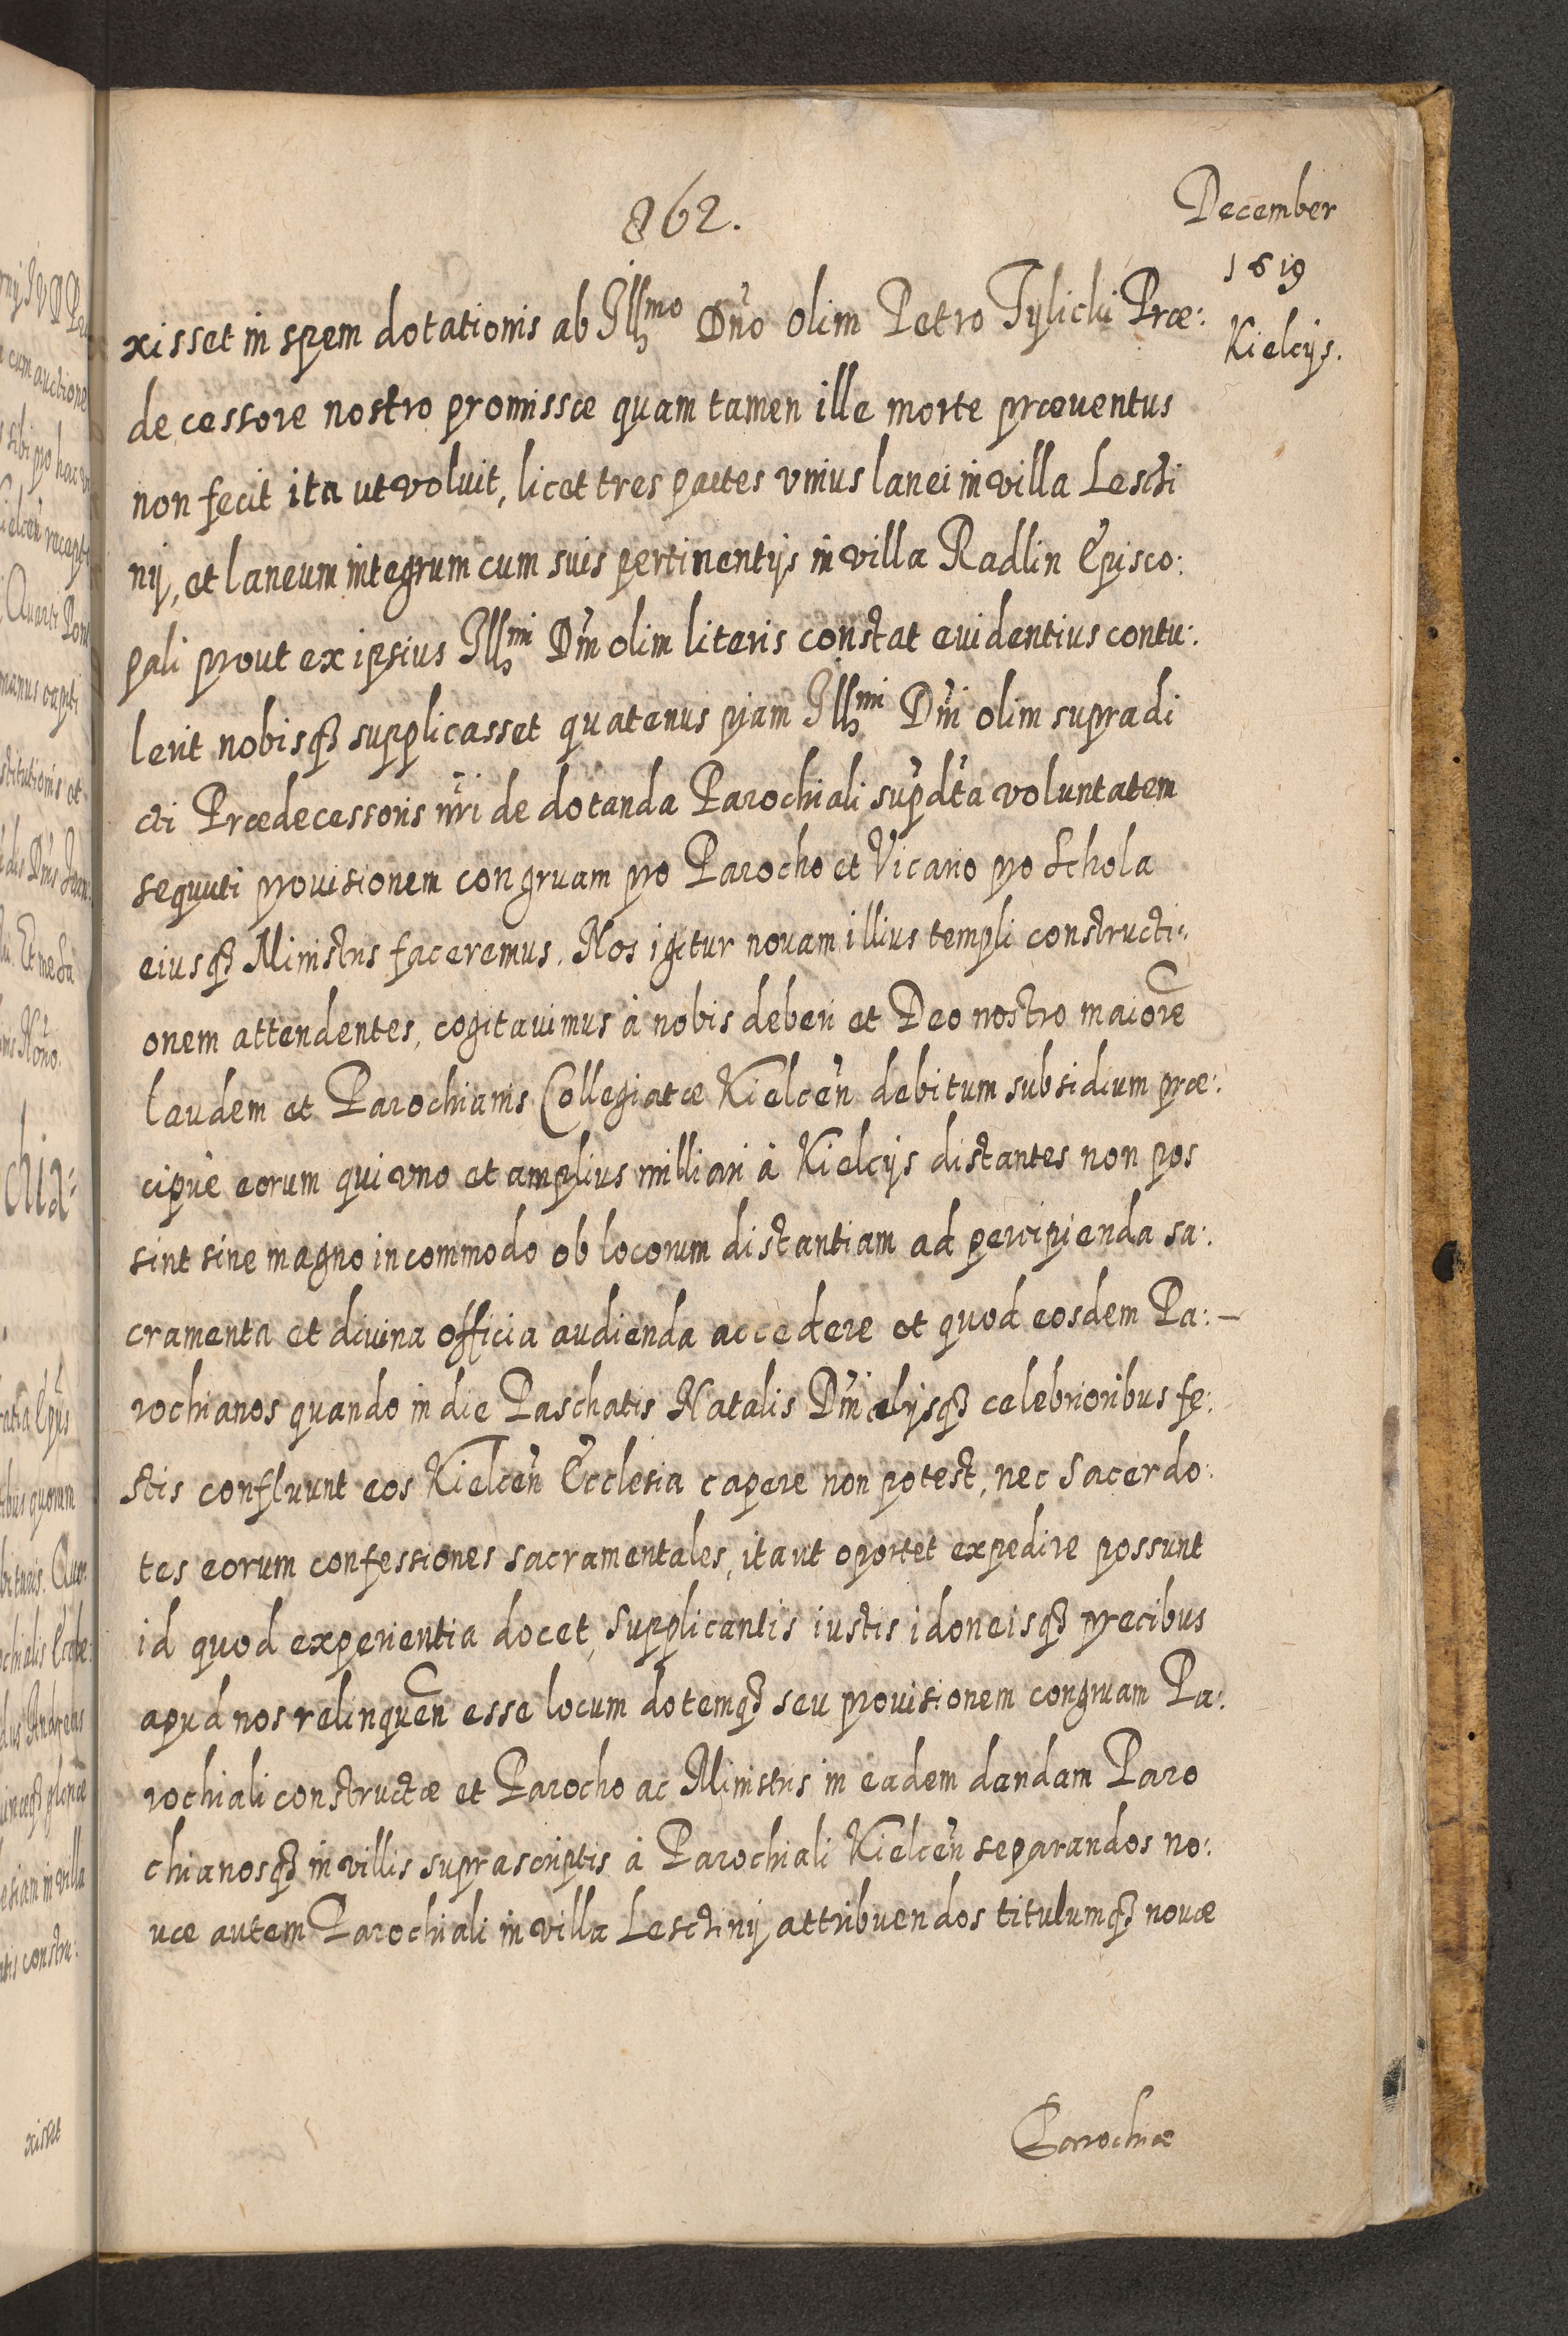 862.
December
1619
Kielcijs.
xisset in spem dotationis ab Illmo Dno olim Petro Tylicki Præ:
decessore nostro promissæ quam tamen ille morte præuentus
non fecit ita ut voluit, licet tres partes vnius lanei in villa Lesczi
nij, et laneum integrum cum suis pertinentijs in villa Radlin Episco:
pali prout ex ipsius Illmi Dni olim literis constat euidentius contu:
lerit nobisq3 supplicasset quatenus piam Illmi Dni olim supradi
cti Prædecessoris nri de dotanda Parochiali supdta voluntatem
sequuti prouisionem congruam pro Parocho et Vicario pro Schola
eiusq3 Ministris faceremus. Nos igitur nouam illius templi constructi:
onem attendentes, cogitauimus à nobis deberi et Deo nostro maiorē
laudem et Parochianis Collegiatæ Kielcen debitum subsidium præ:
cipuè eorum qui vno et amplius milliari à Kielcijs distantes non pos
sint sine magno incommodo ob locorum distantiam ad percipienda sa:
cramenta et diuina officia audienda accedere et quod eosdem Pa:-
rochianos quando in die Paschatis Natalis Dni alijsq3 celebrioribus fe:
stis confluunt eos Kielcen Ecclesia capere non potest, nec Sacerdo:
tes eorum confessiones sacramentales, ita ut oportet expedire possunt
id quod experientia docet, supplicantis iustis idoneisq3 precibus
apud nos relinquen esse locum dotemq3 seu prouisionem congruam Pa:
rochiali constructæ et Parocho ac Ministris in eadem dandam Paro
chianosq3 in villis suprascriptis à Parochiali Kielcen separandos no:
uæ autem Parochiali in villa Lesczinij attribuendos titulumq3 nouæ
Parochiæ
xisset